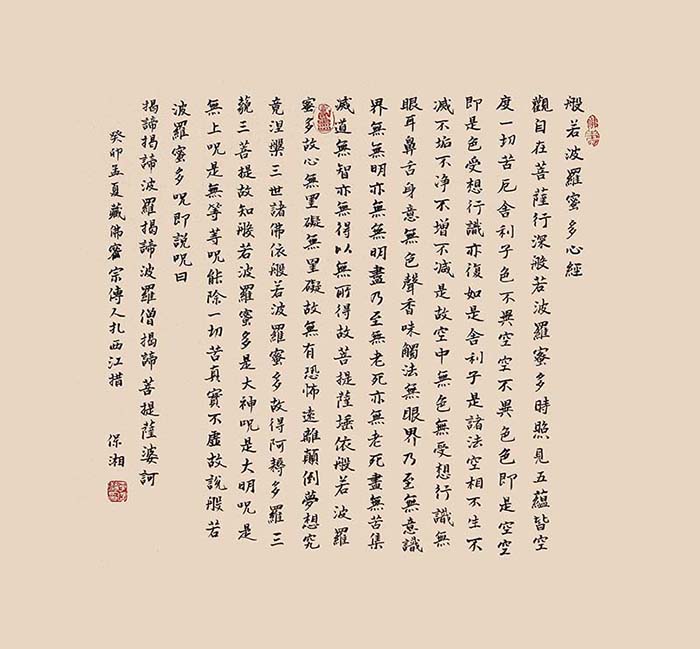 般若波羅蜜多心經
觀自在菩薩行深般若波羅蜜多時照見五蘊皆空
度一切苦厄舍利子色不異空空不異色色即是空空
即是色受想行識亦復如是舍利子是諸法空相不生不
滅不垢不淨不增不減是故空中無色無受想行識無
眼耳鼻舌身意無色聲香味觸法無眼界乃至無意識
界無無明亦無無明盡乃至無老死亦無老死盡無苦集
滅道無智亦無得以無所得故菩提薩埵依般若波羅
蜜多故心無罣礙無罣礙故無有恐怖遠離顛倒夢想究
竟涅槃三世諸佛依般若波羅蜜多故得阿耨多羅三
藐三菩提故知般若波羅蜜多是大神呪是大明呪是
無上呪是無等等呪能除一切苦真實不虛故說般若
波羅蜜多呪即說呪曰
揭諦揭諦波羅揭諦波羅僧揭諦菩提薩婆訶
癸卯孟夏藏佛密宗傳人扎西江措 保湘